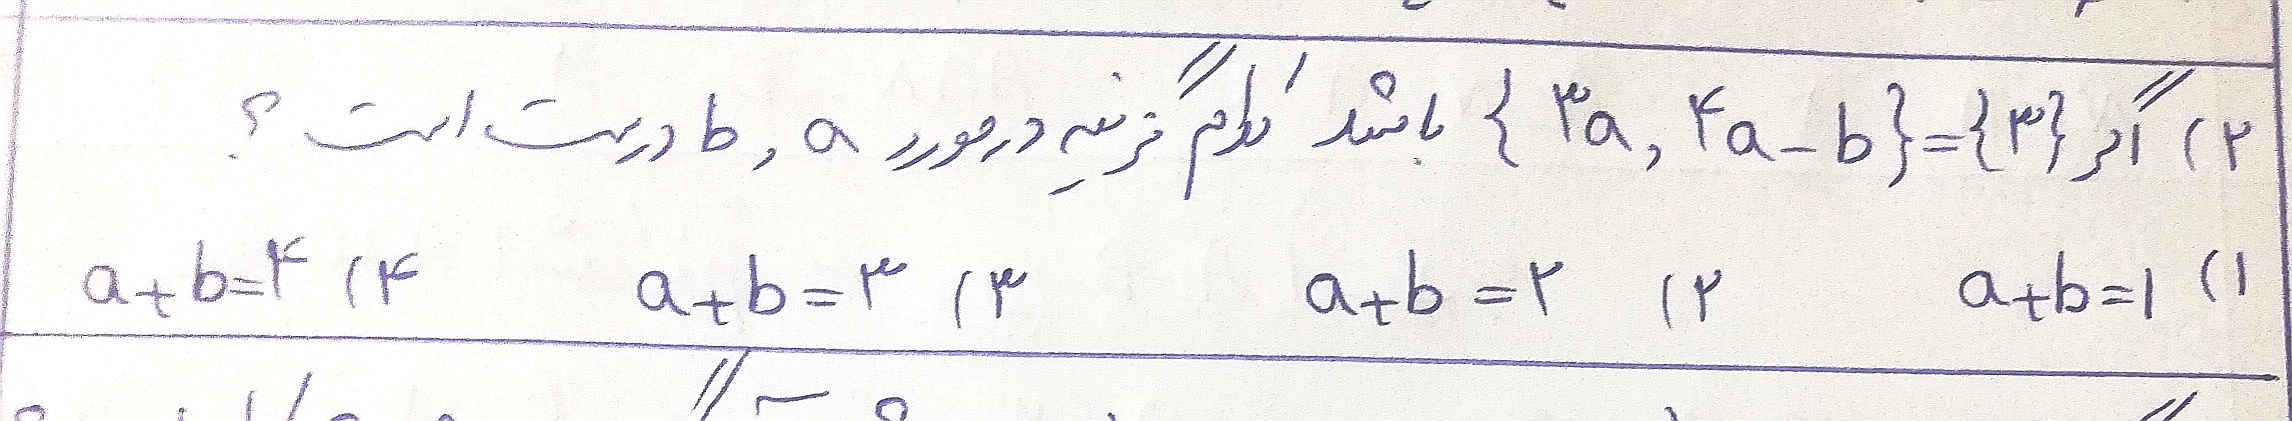 ۲) اگر {۳}={۳a, ۴a-b} باشد کدام گزینه در مورد a و b درست است ؟
۱) a+b=۱ ۲) a+b=۲ ۳) a+b=۳ ۴) a+b=۴